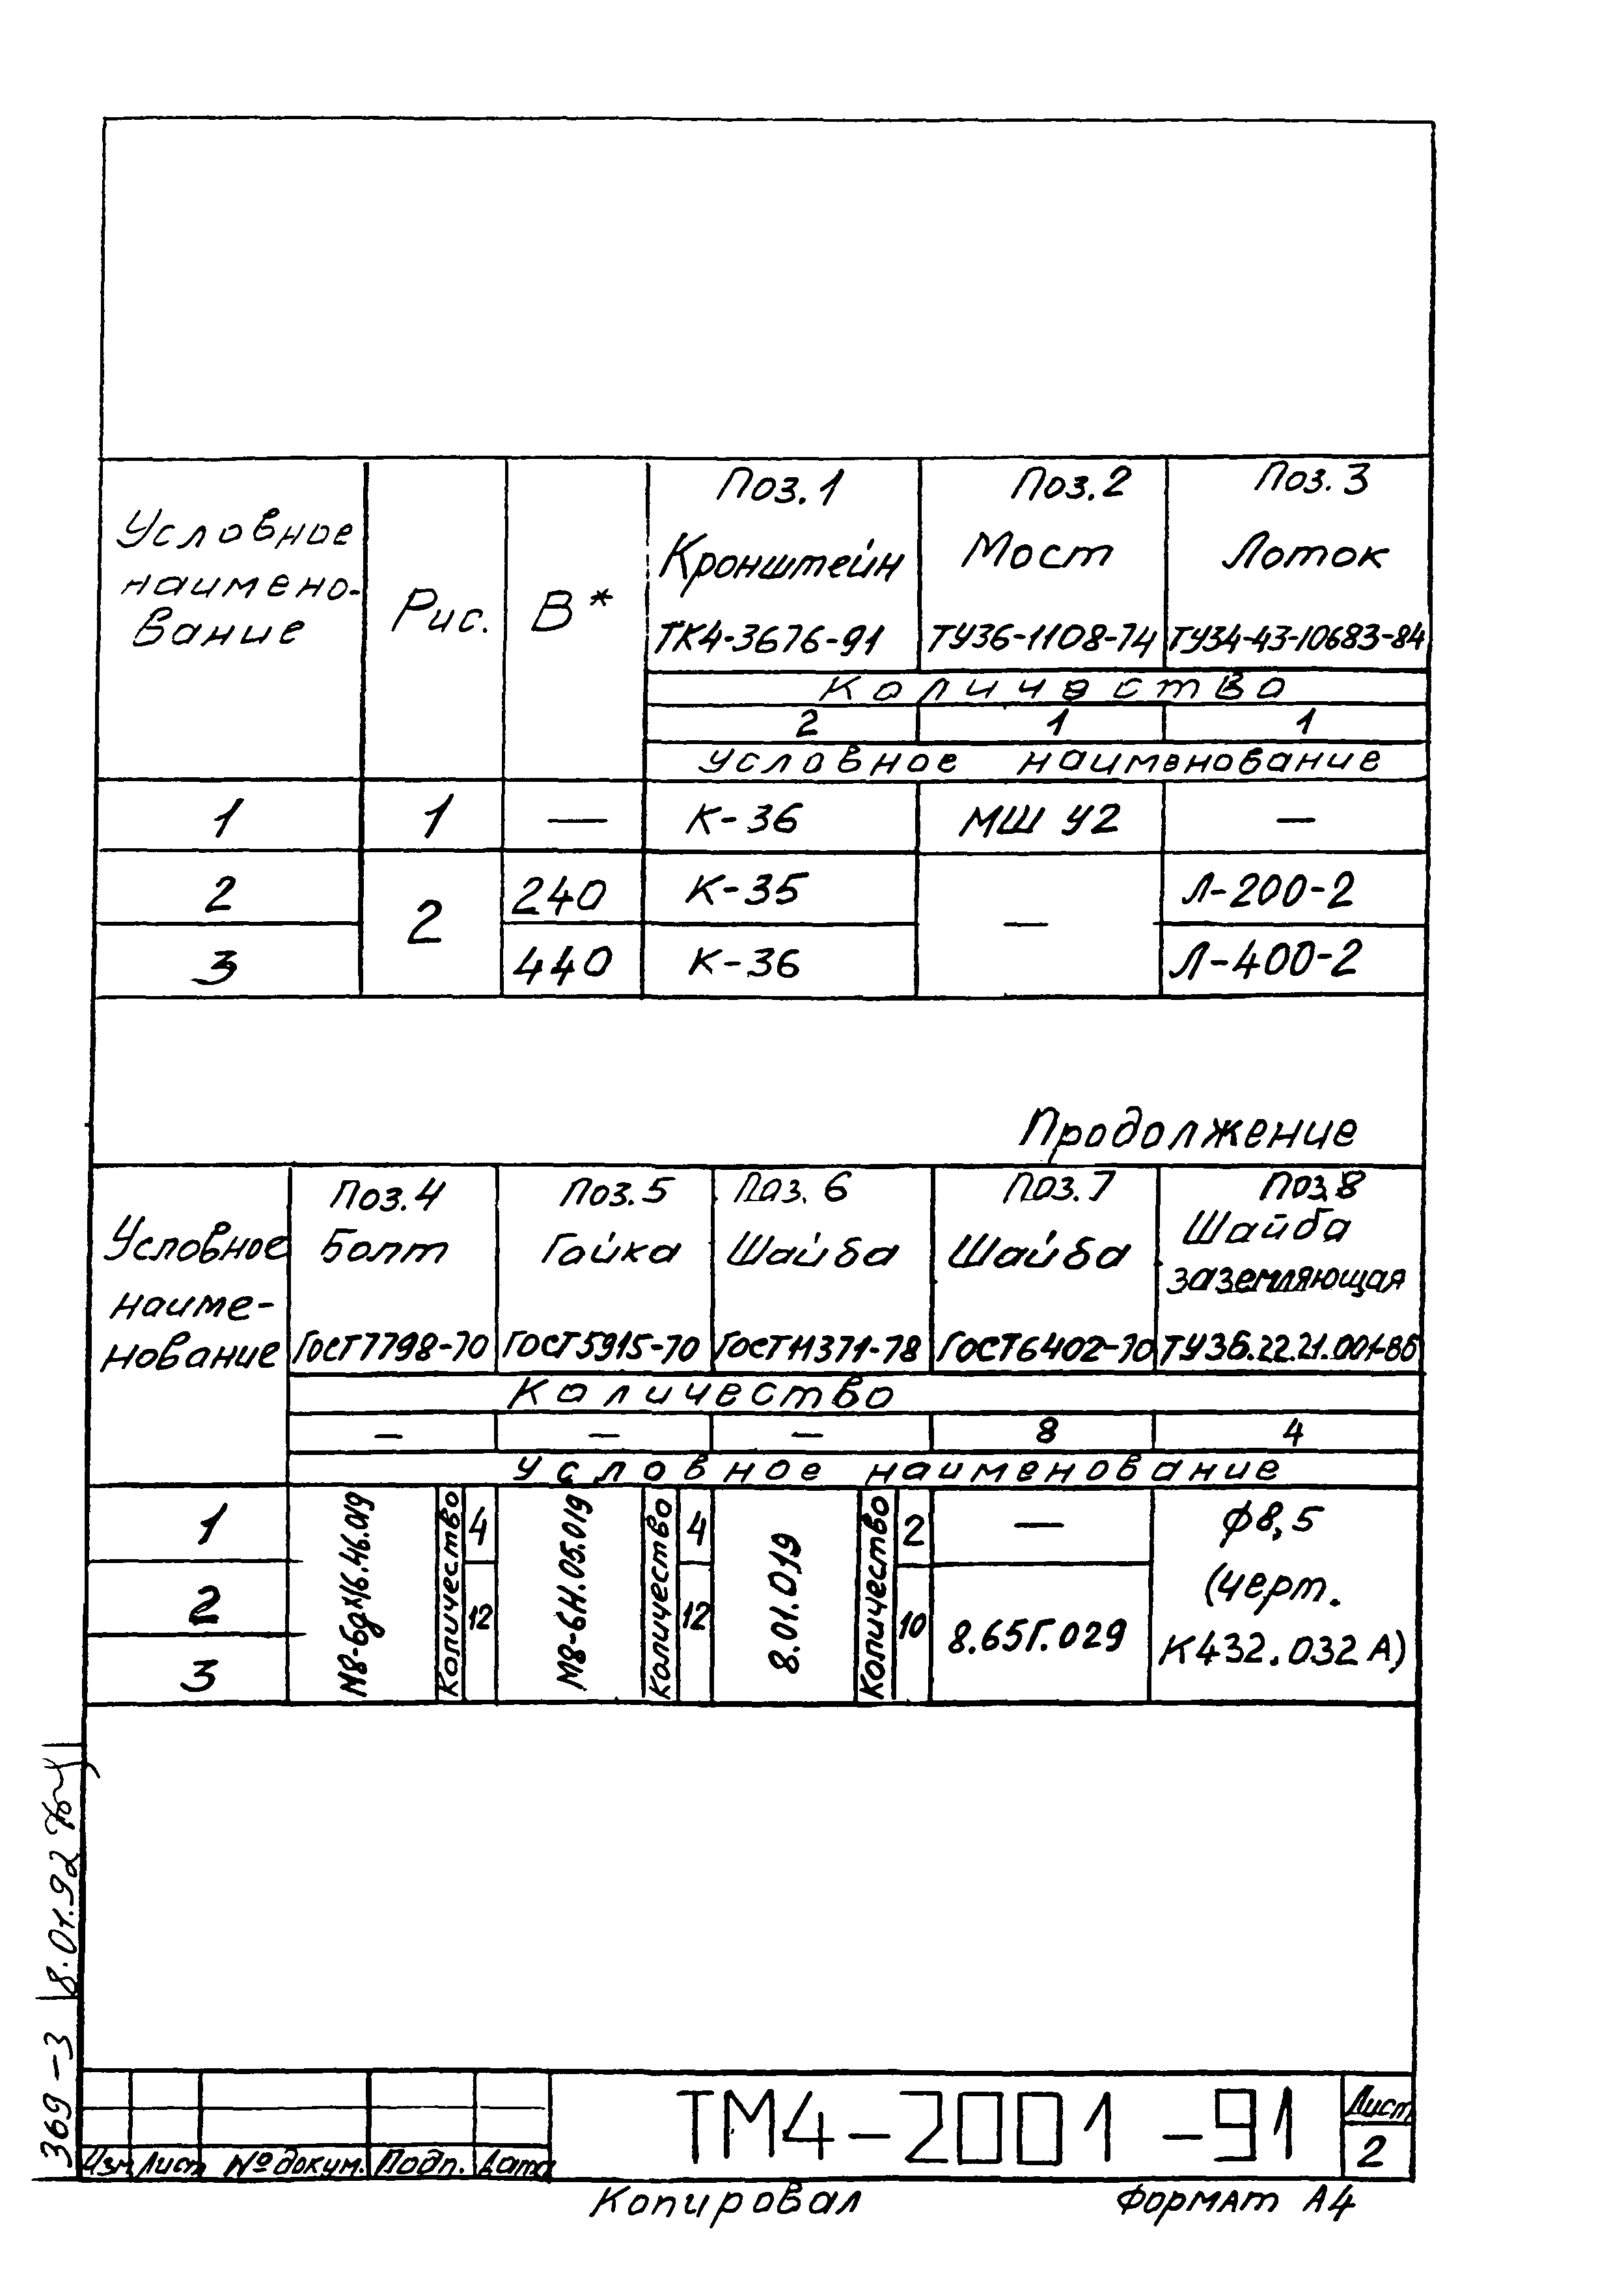 Условное наимено- вание
Рис.
В*
Поз. 1 Кронштейн ТК4-3676-91
Поз. 2 Мост ТУ36-1108-74
Поз. 3 Лоток ТУ34-43-10683-84
Количество
2 1 1
Условное наименование
1 1 — К-36 МШ У2 —
2 2 240 К-35 — Л-200-2
3 440 К-36 Л-400-2
Продолжение
Условное наиме- нование
Поз. 4 Болт ГОСТ 7798-70
Поз. 5 Гайка ГОСТ 5915-70
Поз. 6 Шайба ГОСТ 11371-78
Поз. 7 Шайба ГОСТ 6402-70
Поз. 8 Шайба заземляющая ТУ36.22.21.001-86
Количество
— — — 8 4
Условное наименование
1
2
3
М8-6gх16.46.019
Количество
4
12
М8-6Н.05.019
Количество
4
12
8.01.019
Количество
2
10
—
8.65Г.029
ф8,5
(черт.
К432.032 А)
369-3 8.01.92
Изм Лист № докум. Подп. Дата
ТМ4-2001-91
Лист
2
Копировал Формат А4